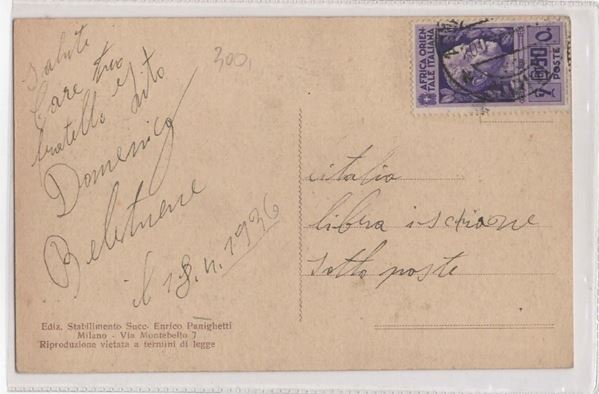 Salute
Care tuo
fratello
Domenico
il 18.11.1936
300,
AFRICA ORIEN-
TALE ITALIANA
50
POSTE
italia
libera
sotto poste
Ediz. Stabilimento Succ. Enrico Panighetti
Milano - Via Montebello 7
Riproduzione vietata a termini di legge